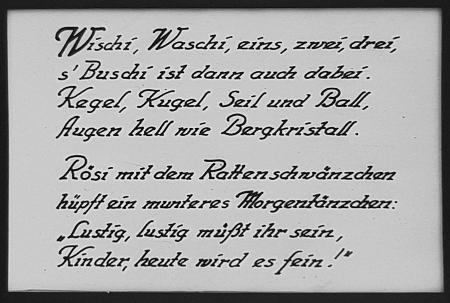 Wischi, Waschi, eins, zwei, drei,
s' Buschi ist dann auch dabei.
Kegel, Kugel, Seil und Ball,
Augen hell wie Bergkristall.
Rösi mit dem Rattenschwänzchen
hüpft ein munteres Morgentänzchen:
„Lustig, lustig müßt ihr sein,
Kinder, heute wird es fein!"